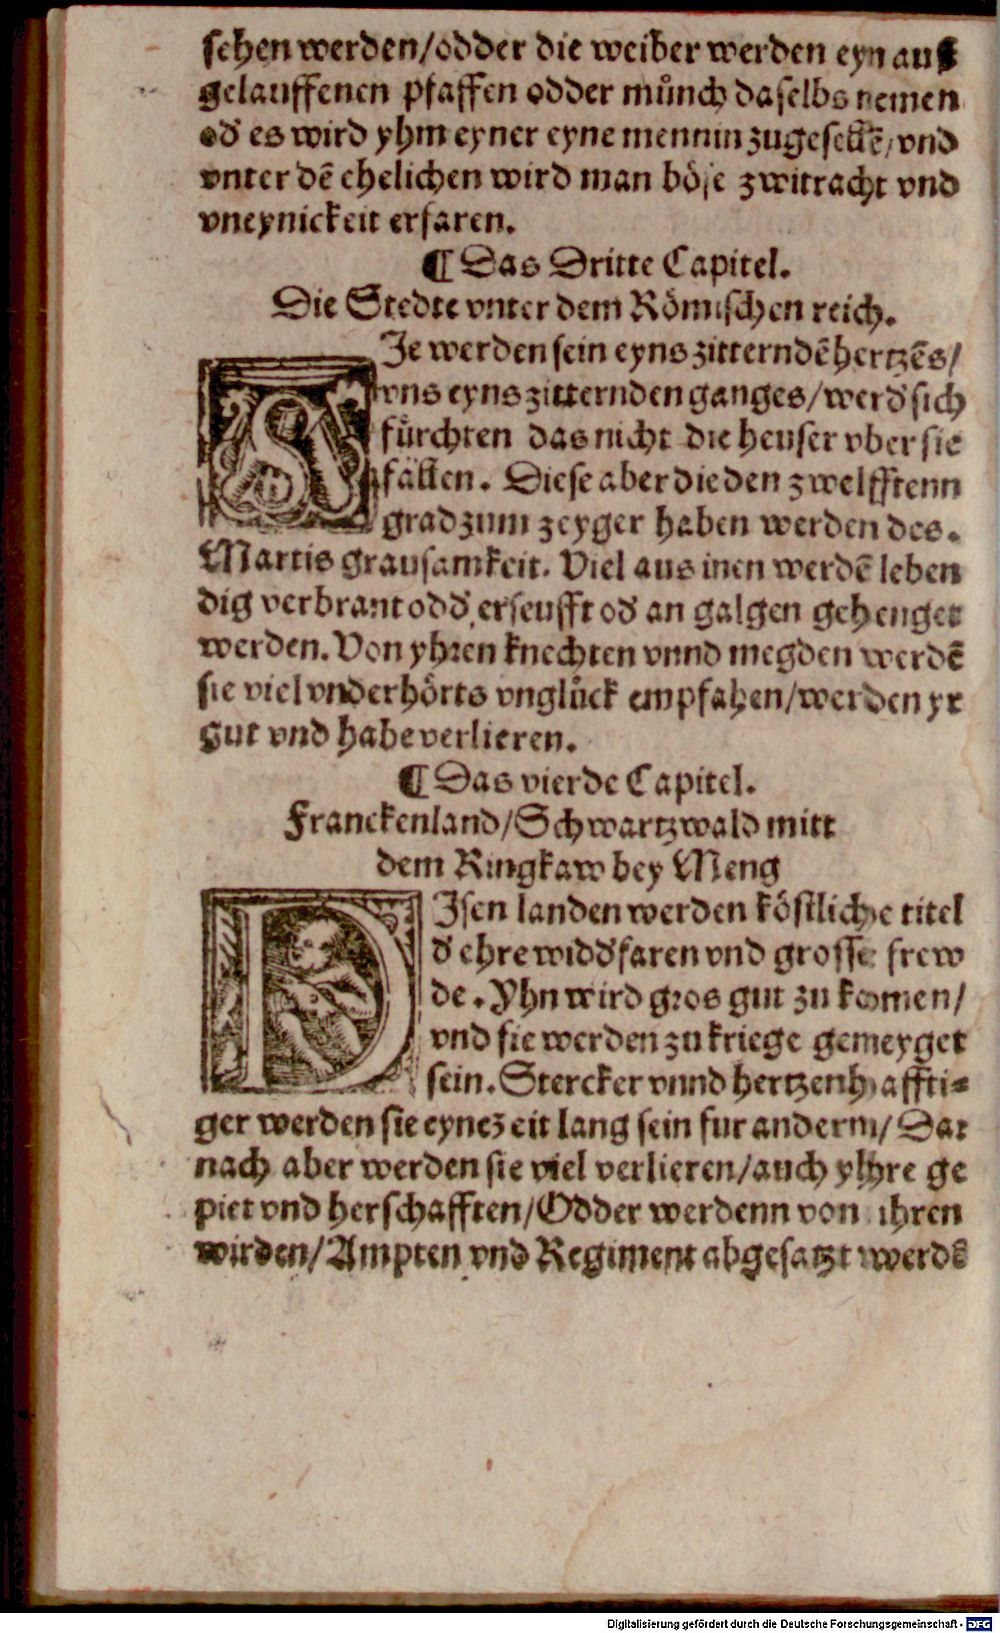 sehen werden/odder die weiber werden eyn aus
gelauffenen pfaffen odder můnch daselbs nemen
od' es wird yhm eyner eyne mennin zugesellē/vnd
vnter dē ehelichen wird man böse zwitracht vnd
vneynickeit erfaren.
¶ Das Dritte Capitel.
Die Stedte vnter dem Römischen reich.
SJe werden sein eyns zitterndē hertzēs/
vns eyns zitternden ganges/werd' sich
fürchten das nicht die heuser vber sie
fällen. Diese aber die den zwelfftenn
grad zum zeyger haben werden des.
Martis grausamkeit. Viel aus inen werdē leben
dig verbrant odd' erseufft od' an galgen gehenget
werden. Von yhren knechten vnnd megden werdē
sie viel vnderhörts vnglůck empfahen/werden yr
gut vnd habe verlieren.
¶ Das vierde Capitel.
Franckenland/Schwartzwald mitt
dem Ringkaw bey Meng
DJsen landen werden köstliche titel
d' ehre widd'faren vnd grosse frew
de. Yhn wird gros gut zu komen/
vnd sie werden zu kriege gemeyget
sein. Stercker vnnd hertzenhaffti-
ger werden sie eyne zeit lang sein fur anderm/Dar
nach aber werden sie viel verlieren/auch yhre ge
piet vnd herschafften/Odder werdenn von ihren
wirden/Ampten vnd Regiment abgesatzt werdē
Digitalisierung gefördert durch die Deutsche Forschungsgemeinschaft - DFG